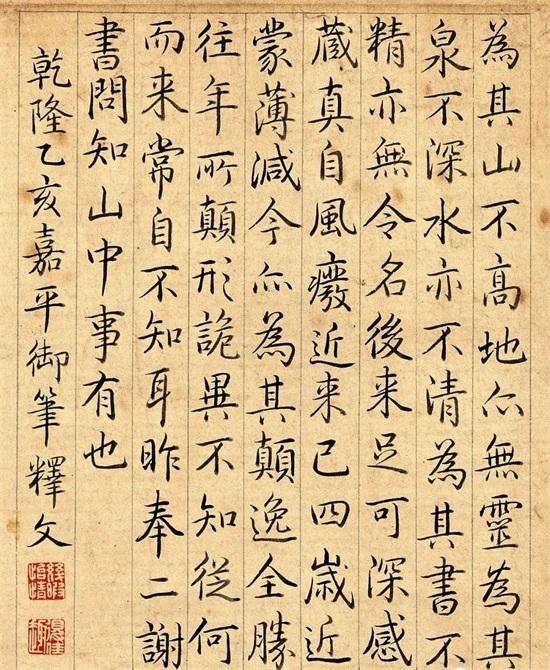 為其山不高地亦無靈為其
泉不深水亦不清為其書不
精亦無令名後来足可深感
蔵真自風癈近来已四歳近
蒙薄減今亦為其顛逸全勝
往年所顛形詭異不知従何
而来常自不知耳昨奉二謝
書問知山中事有也
乾隆乙亥嘉平御筆釋文